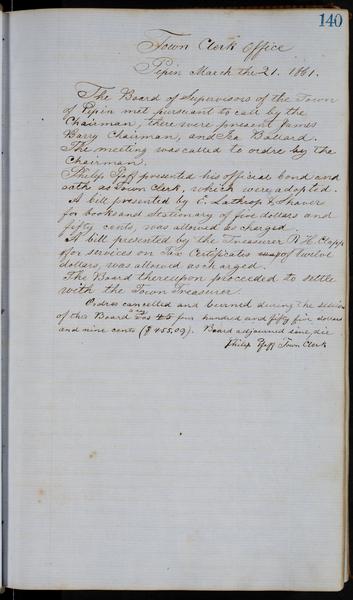 140
Town Clerk Office
Pepin March the 21. 1861.
The Board of Supervisors of the Town
of Pepin met pursuant to call by the
Chairman, there were present James
Barry Chairman, and Ira Ballard.
The meeting was called to ordre by the
Chairman.
Philip Pfaff presented his official bond and
oath as Town Clerk, which were adopted.
A bill presented by E. Lathrop & Shaver
for books and stationary of five dollars and
fifty cents, was allowed as charged.
A bill presented by the Treasurer H. Clapp
for services on Tax Certificates of twelve
dollars, was allowed as charged.
The Board thereupon proceeded to settle
with the Town Treasurer.
Orders cancelled and burned during the session
of this Board are four hundred and fifty five dollars
and nine cents ($455,09). Board adjourned sine, die
Philip Pfaff Town Clerk